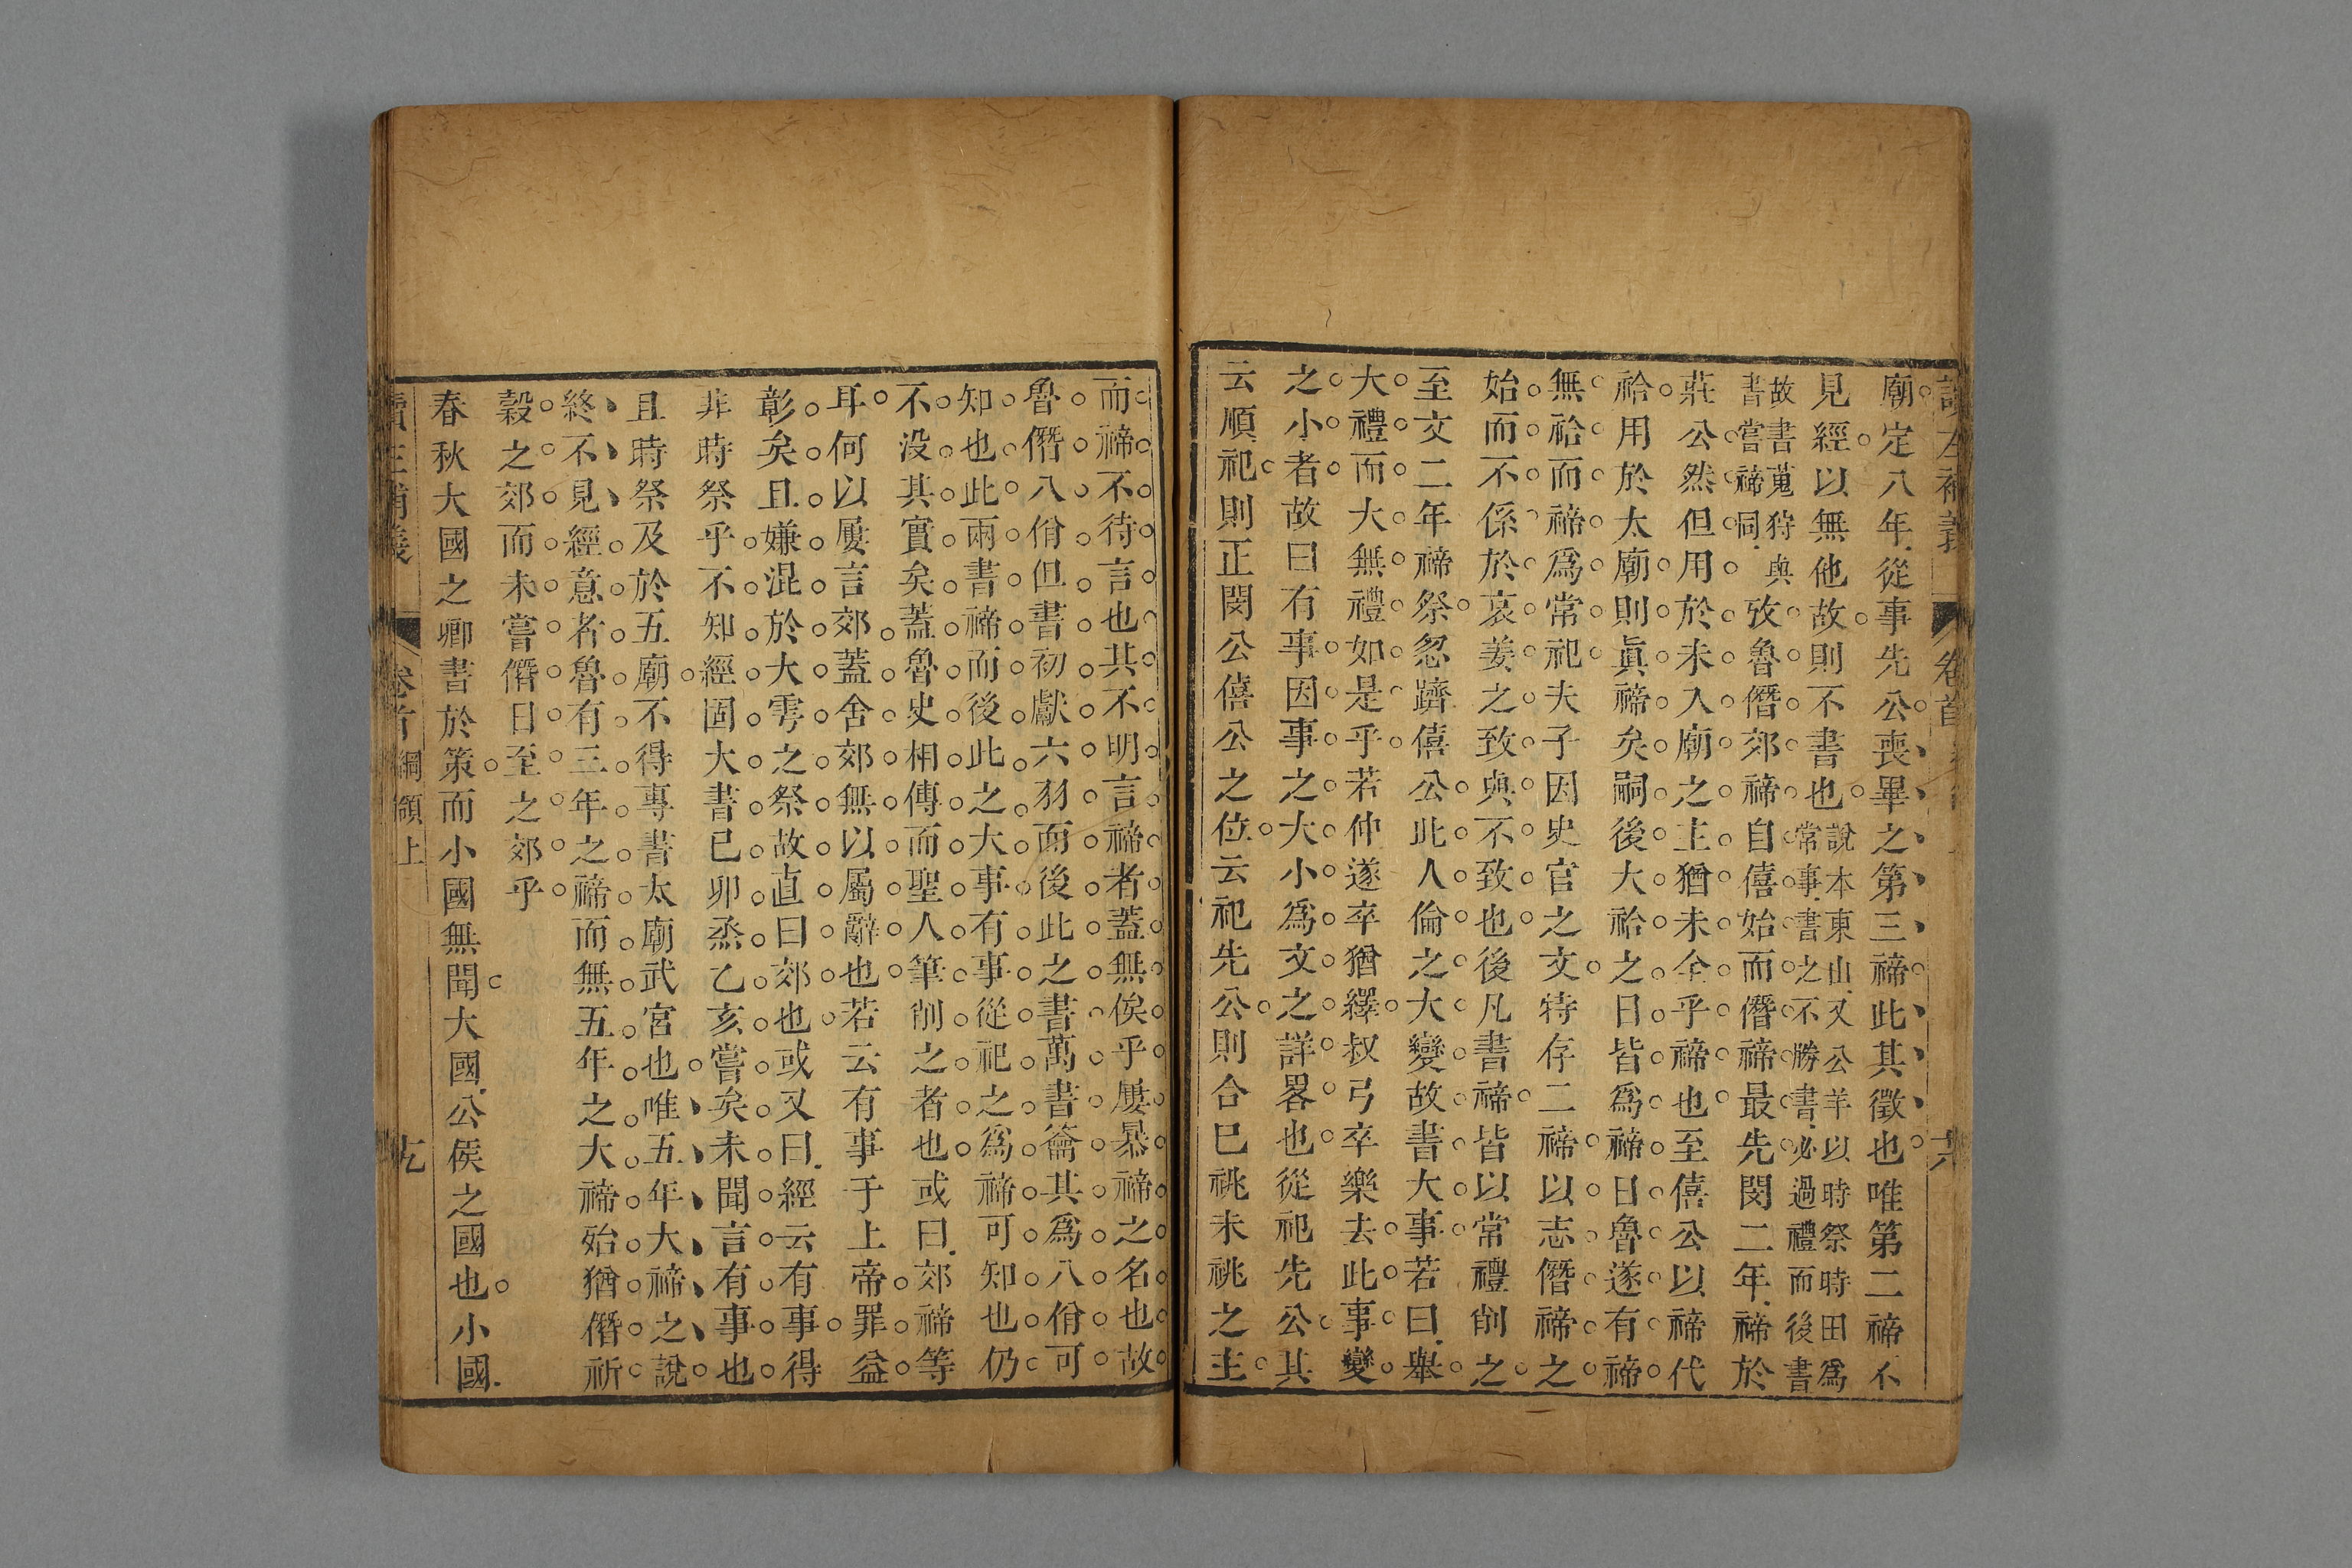 讀左補義 卷首 六
廟定八年從事先公喪畢之第三禘此其徵也唯第二禘不
見經以無他故則不書也說本東山又公羊以時祭時田爲
常事書之不勝書必過禮而後書
故書蒐狩與
書嘗禘同攷魯僭郊禘自僖始而僭禘最先閔二年禘於
莊公然但用於未入廟之主猶未全乎禘也至僖公以禘代
祫用於太廟則眞禘矣嗣後大祫之日皆爲禘日魯遂有禘
無祫而禘爲常祀夫子因史官之文特存二禘以志僭禘之
始而不係於哀姜之致與不致也後凡書禘皆以常禮削之
至文二年禘祭忽躋僖公此人倫之大變故書大事若曰舉
大禮而大無禮如是乎若仲遂卒猶繹叔弓卒樂去此事變
之小者故曰有事因事之大小爲文之詳畧也從祀先公其
云順祀則正閔公僖公之位云祀先公則合巳祧未祧之主
而禘不待言也其不明言禘者蓋無俟乎屢暴禘之名也故
魯僭八佾但書初獻六羽而後此之書萬書籥其爲八佾可
知也此兩書禘而後此之大事有事從祀之爲禘可知也仍
不没其實矣蓋魯史相傳而聖人筆削之者也或曰郊禘等
耳何以屢言郊蓋舍郊無以屬辭也若云有事于上帝罪益
彰矣且嫌混於大雩之祭故直曰郊也或又曰經云有事得
非時祭乎不知經固大書巳卯烝乙亥嘗矣未聞言有事也
且時祭及於五廟不得專書太廟武宮也唯五年大禘之說
終不見經意者魯有三年之禘而無五年之大禘殆猶僭祈
穀之郊而未嘗僭日至之郊乎
春秋大國之卿書於策而小國無聞大國公侯之國也小國
讀左補義 卷首 綱領上